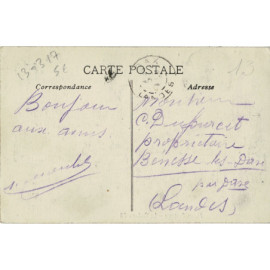 133317
CARTE POSTALE
Correspondance
Adresse
Bonjour
aux amis
Monsieur
C. Dupurcit
propriétaire
Benesse-les-Dax
par Dax
(Landes)